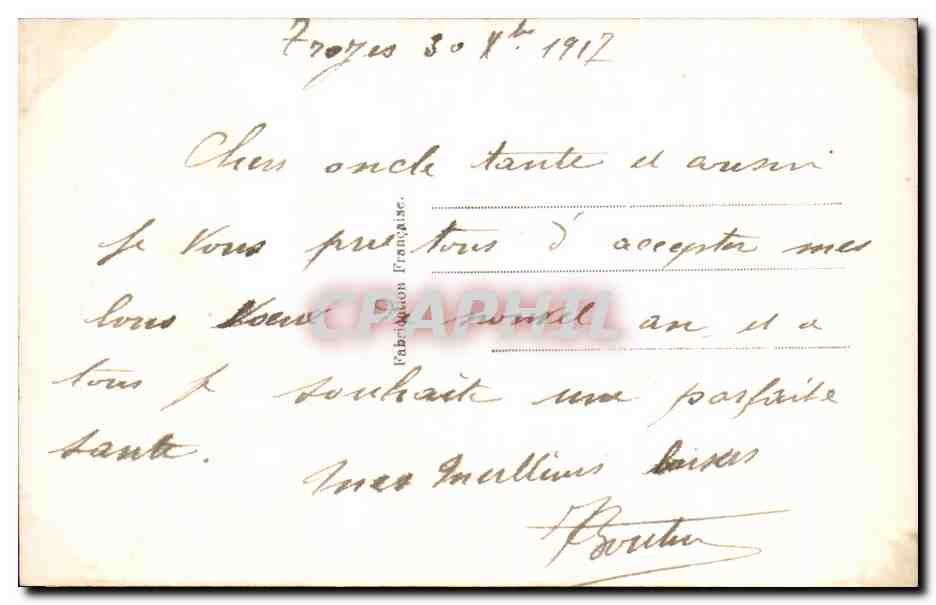 Troyes 30 Xbre 1917
Chers oncle tante et cousin
Je vous prie tous d'accepter mes
bons voeux de nouvel an et a
tous je souhaite une parfaite
sante.
mes meilleurs baisers
Boutin
Fabrication Française.
CPAPHIL